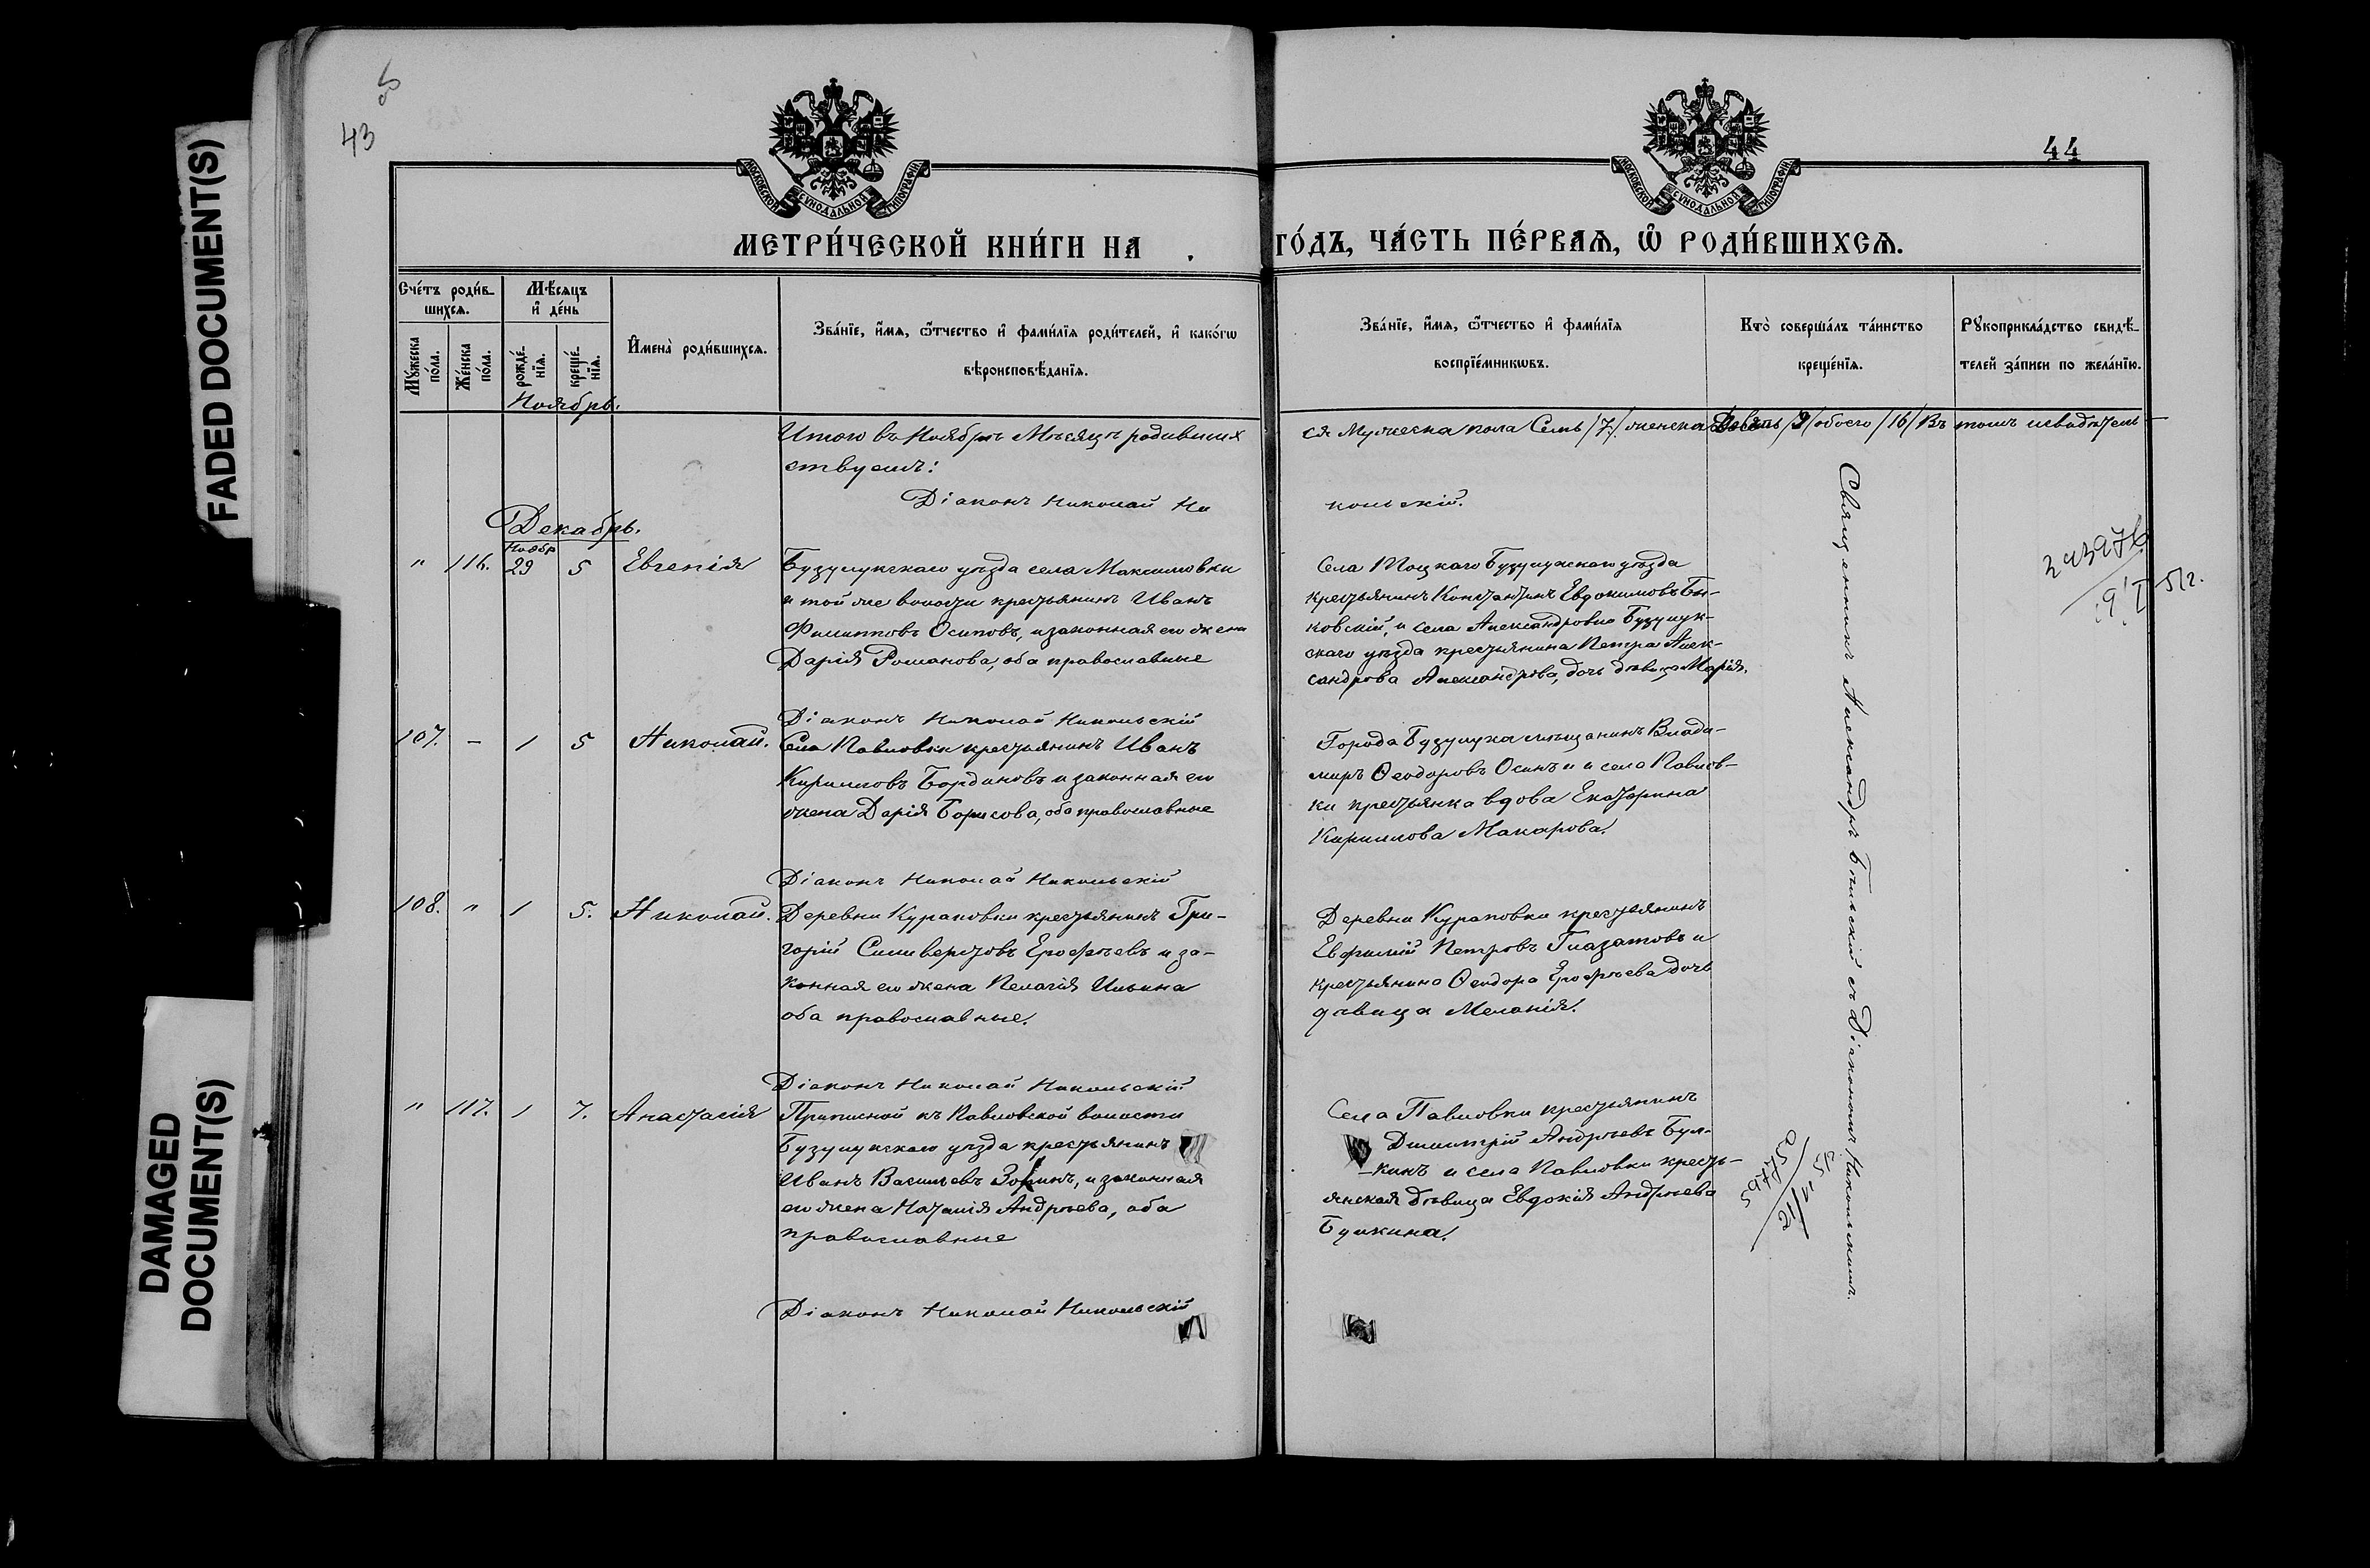 FADED DOCUMENT(S)
DAMAGED
DOCUMENT(S)
43
44
МОСКОВСКОЙ СѴНОДАЛЬНОЙ ТИПОГРАФІИ
МОСКОВСКОЙ СѴНОДАЛЬНОЙ ТИПОГРАФІИ
МЕТРИ́ЧЕСКОЙ КНИ́ГИ НА
ГО́ДЪ, ЧА́СТЬ ПЕ́РВАѦ, Ѡ҆ РОДИ́ВШИХСѦ.
Сче́тъ роди́в-
шихсѧ.
Мꙋ́жеска
по́ла.
Же́нска
по́ла.
Мѣ́сѧцъ
и҆ де́нь
рожде́-
нїѧ.
креще́-
нїѧ.
И҆мена̀ роди́вшихсѧ.
Зва́нїе, и҆́мѧ, ѻ҆́тчество и҆ фами́лїѧ роди́телей, и҆ како́гѡ
вѣроисповѣ́данїѧ.
Зва́нїе, и҆́мѧ, ѻ҆́тчество и҆ фами́лїѧ
воспрїе́мникѡвъ.
Кто̀ соверша́лъ та́инство
креще́нїѧ.
Рꙋкоприкла́дство свидѣ́-
телей за́писи по жела́нїю.
Ноябрь.
Итого въ Ноябрѣ Мѣсяцѣ родивших
ся мужеска пола Семь /7/. женска Девять /9/ обоего /16/ Въ томъ и свидѣтель-
ствуемъ:
Діаконъ Николай Ни
кольскій.
Декабрь.
Ноябр
" 116. 29 5 Евгенія
Бузулукскаго уѣзда села Максимовки
и той же волости крестьянинъ Иванъ
Филипповъ Осиповъ, и законная его жена
Дарія Романова, оба православные
Села Тоцкаго Бузулукскаго уѣзда
крестьянинъ Константинъ Евдокимовъ Бы-
ковскій, и села Александровки Бузулук-
скаго уѣзда крестьянина Петра Алек-
сандрова Александрова, дочь дѣвица Марія.
Діаконъ Николай Никольскій
107. - 1 5 Николай.
Села Павловки крестьянинъ Иванъ
Кирилловъ Бординовъ и законная его
жена Дарія Борисова, оба православные
Города Бузулука мѣщанинъ Влади-
миръ Ѳеодоровъ Осинъ и и села Павлов-
ки крестьянка вдова Екатерина
Кириллова Макарова.
Діаконъ Николай Никольскій
108. " 1 5. Николай.
Деревни Кураповки крестьянинъ Гри-
горій Силиверстовъ Ерофѣевъ и за-
конная его жена Пелагія Ильина
оба православные.
Деревни Кураповки крестьянинъ
Евфимій Петровъ Глазатовъ и
крестьянина Ѳеодора Ерофѣева дочь
дѣвица Меланія.
Діаконъ Николай Никольскій
" 117. 1 7. Анастасія
Приписной къ Павловской волости
Бузулукскаго уѣзда крестьянинъ
Иванъ Васильевъ Зонинъ, и законная
его жена Наталія Андреева, оба
православные
Села Павловки крестьянинъ
Димитрій Андреевъ Бул-
-кинъ и села Павловки кресть-
янская дѣвица Евдокія Андреева
Булкина.
Діаконъ Николай Никольскій
Священникъ Александръ Бѣльскій съ Діакономъ Никольскимъ.